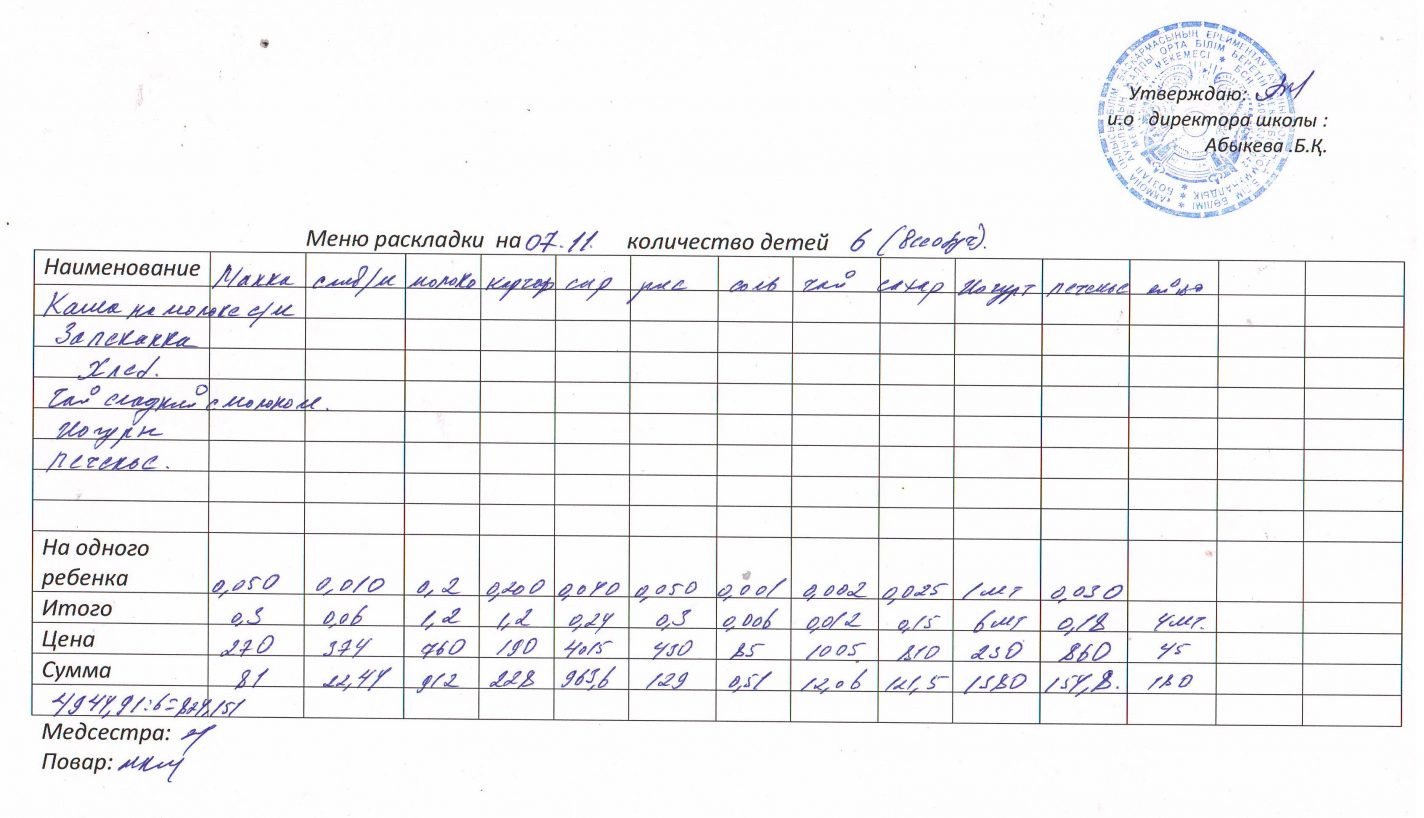 Утверждаю:
и.о директора школы :
Абыкева .Б.Қ.
Меню раскладки на 07.11. количество детей 6 (Всеобуч).
Наименование Манка слив/м молоко картоф сыр рис соль чай сахар Йогурт печенье яйцо
Каша на молоке с/м
Запеканка
Хлеб.
Чай сладкий с молоком.
Йогурт
печенье.
На одного
ребенка 0,050 0,010 0,2 0,200 0,040 0,050 0,001 0,002 0,025 1шт 0,030
Итого 0,3 0,06 1,2 1,2 0,24 0,3 0,006 0,012 0,15 6шт 0,18 4шт.
Цена 270 374 760 190 4015 430 85 1005 810 230 860 45
Сумма 81 22,44 912 228 963,6 129 0,51 12,06 121,5 1380 154,8. 180
4944,91:6=824,151
Медсестра:
Повар: